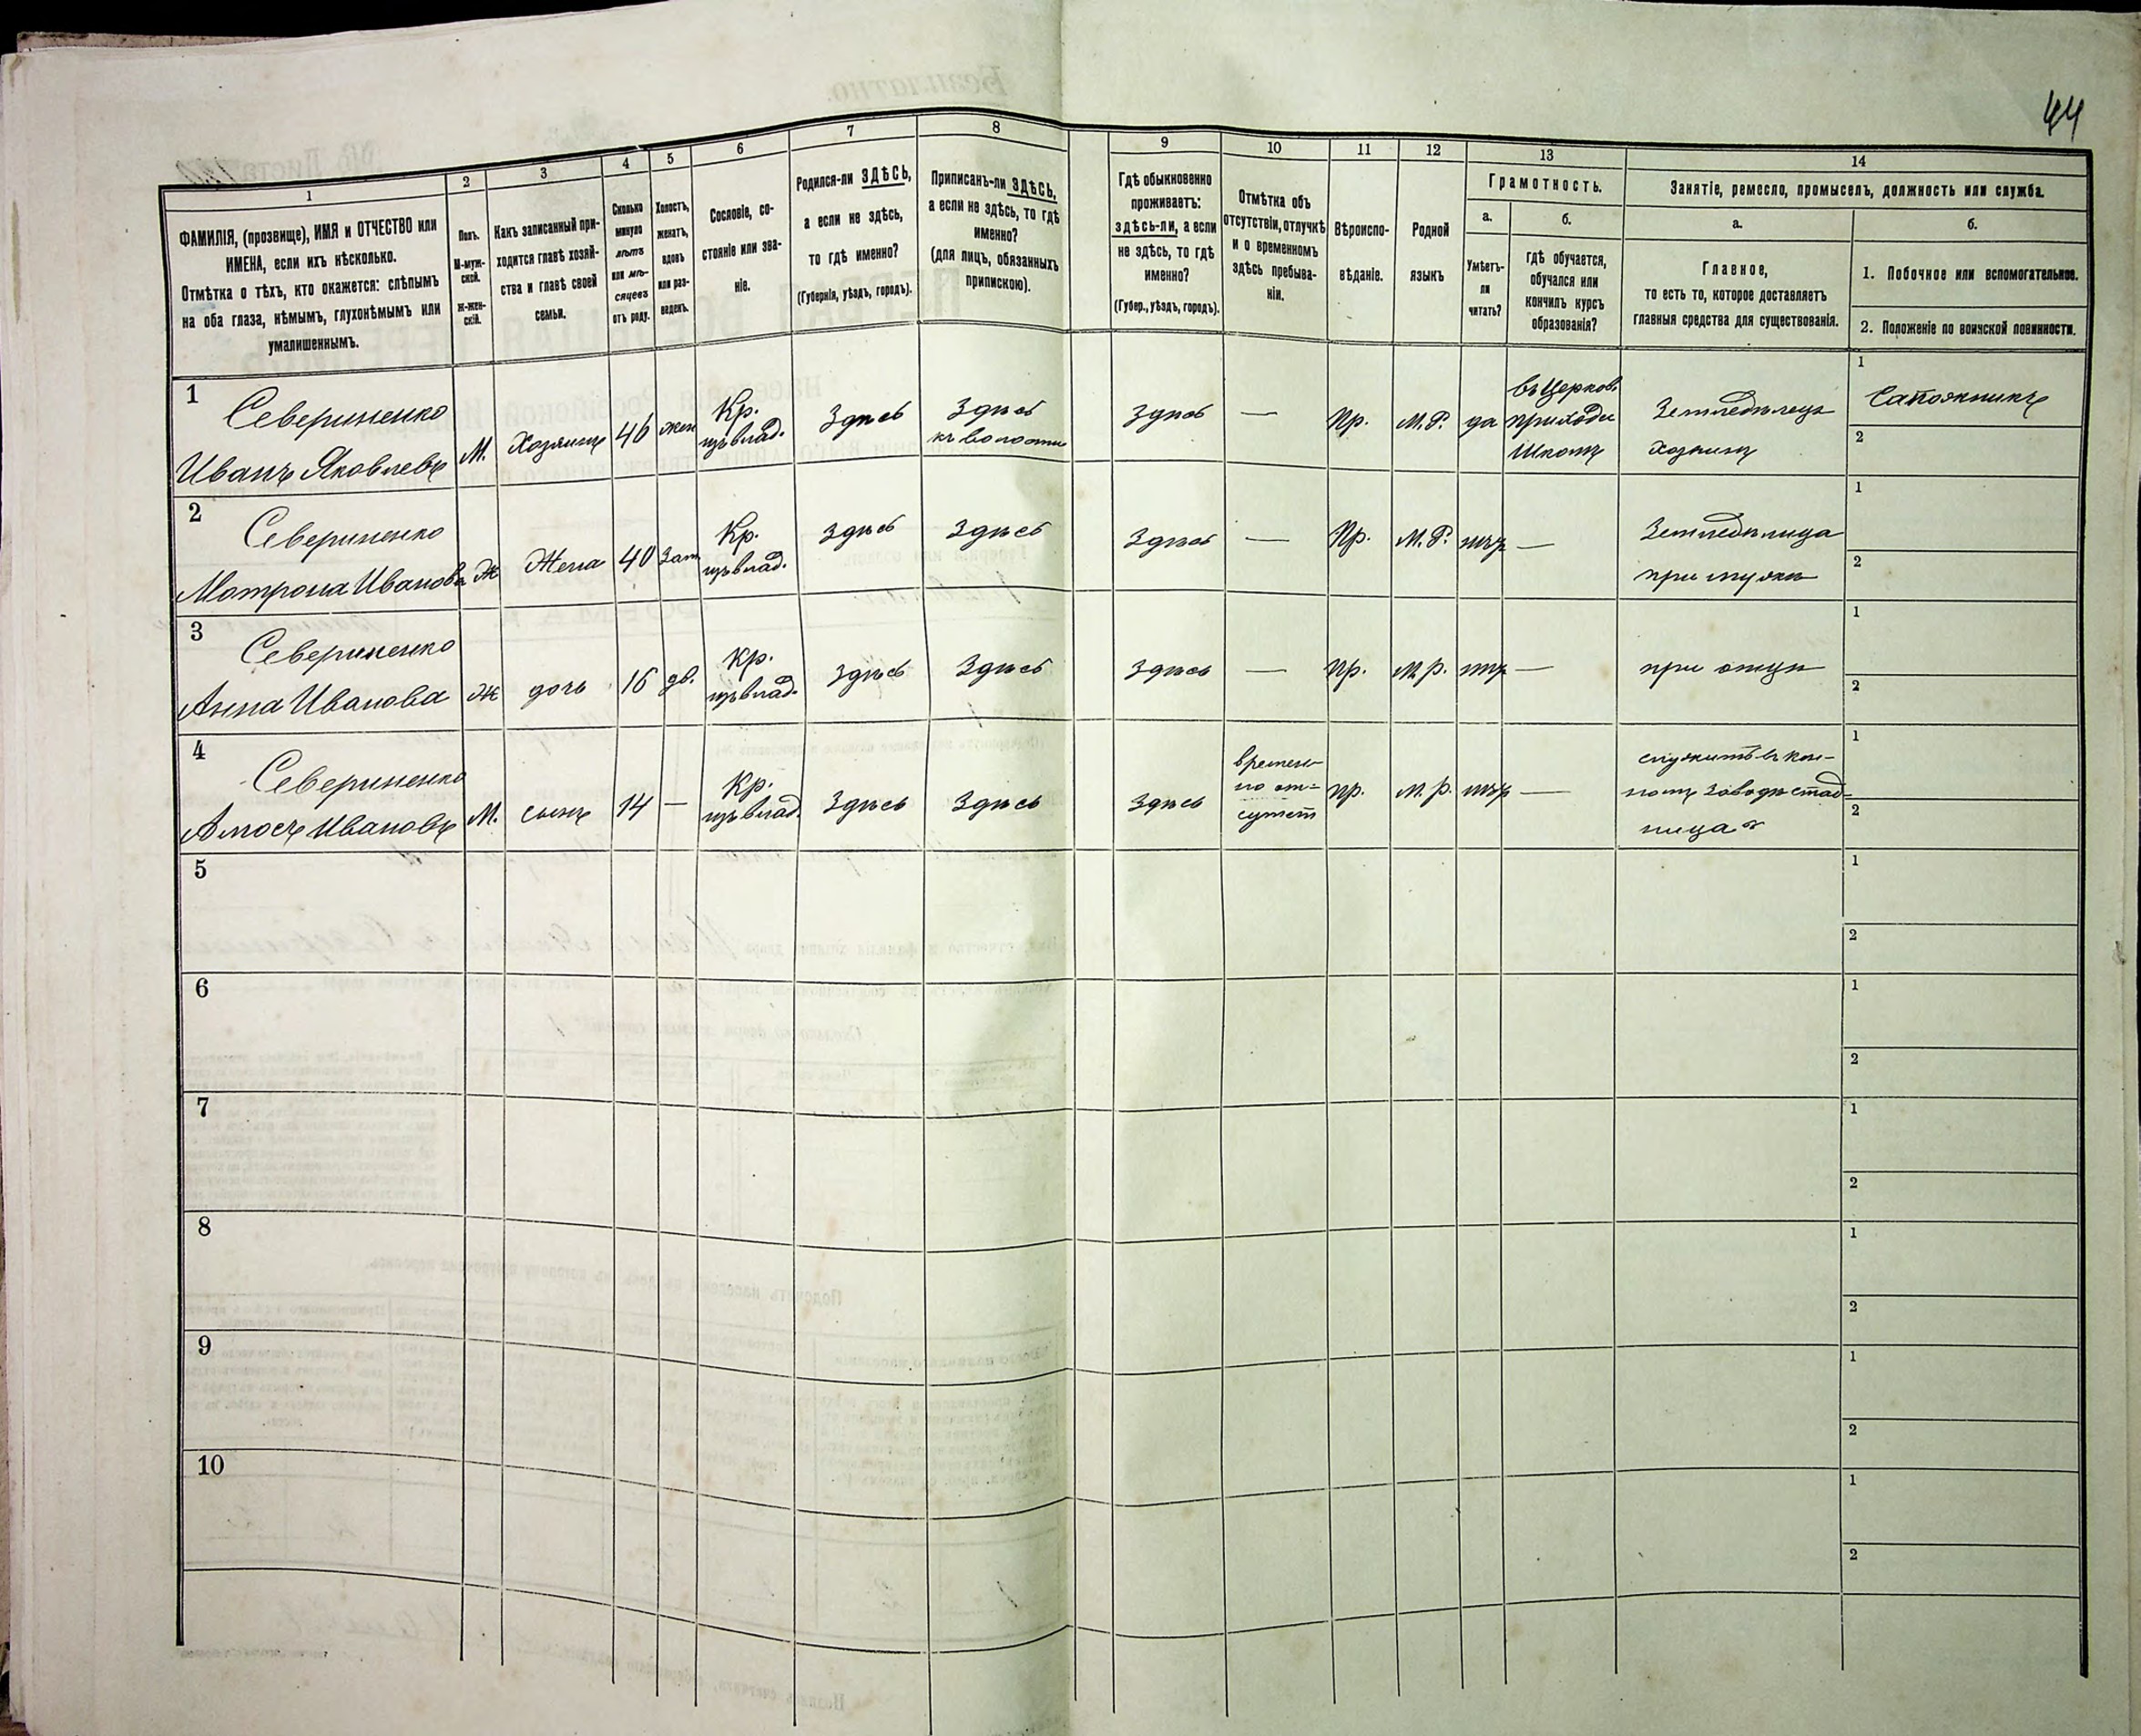 44
1
2
3
4
5
6
7
8
9
10
11
12
13
14
ФАМИЛІЯ, (прозвище), ИМЯ и ОТЧЕСТВО или
ИМЕНА, если ихъ нѣсколько.
Отмѣтка о тѣхъ, кто окажется: слѣпымъ
на оба глаза, нѣмымъ, глухонѣмымъ или
умалишеннымъ.
Полъ.
М-муж-
ской.
Ж-жен-
скій.
Какъ записанный при-
ходится главѣ хозяй-
ства и главѣ своей
семьи.
Сколько
минуло
лѣтъ
или мѣ-
сяцевъ
отъ роду.
Холостъ,
женатъ,
вдовъ
или раз-
веденъ.
Сословіе, со-
стояніе или зва-
ніе.
Родился-ли ЗДѢСЬ,
а если не здѣсь,
то гдѣ именно?
(Губернія, уѣздъ, городъ).
Приписанъ-ли ЗДѢСЬ,
а если не здѣсь, то гдѣ
именно?
(для лицъ, обязанныхъ
припискою).
Гдѣ обыкновенно
проживаетъ:
здѣсь-ли, а если
не здѣсь, то гдѣ
именно?
(Губер., уѣздъ, городъ).
Отмѣтка объ
отсутствіи, отлучкѣ
и о временномъ
здѣсь пребыва-
ніи.
Вѣроиспо-
вѣданіе.
Родной
языкъ
Грамотность.
а.
б.
Умѣетъ-
ли
читать?
гдѣ обучается,
обучался или
кончилъ курсъ
образованія?
Занятіе, ремесло, промыселъ, должность или служба.
а.
б.
Главное,
то есть то, которое доставляетъ
главныя средства для существованія.
1. Побочное или вспомогательное.
2. Положеніе по воинской повинности.
1
Севериненко
Иванъ Яковлевъ
М.
Хозяинъ
46
жен
Кр.
изъ влад.
Здѣсь
Здѣсь
къ волости
Здѣсь
—
Пр.
М.Р.
да
въ Церков.
приходс
школѣ
Земледѣлецъ
хозяинъ
1
Сапожникъ
2
2
Севериненко
Матрона Иванова
Ж
Жена
40
Зам
Кр.
изъ влад.
Здѣсь
Здѣсь
Здѣсь
—
Пр.
М.Р.
нѣтъ
—
Земледѣлица
при мужѣ
1
2
3
Севериненко
Анна Иванова
Ж
дочь
16
дв.
Кр.
изъ влад.
Здѣсь
Здѣсь
Здѣсь
—
Пр.
М.Р.
нѣтъ
—
при отцѣ
1
2
4
Севериненко
Амосъ Ивановъ
М.
сынъ
14
—
Кр.
изъ влад.
Здѣсь
Здѣсь
Здѣсь
времен-
но от=
сутст
пр.
М.Р.
нѣтъ
—
служитъ въ кон-
номъ заводѣ
1
2
5
1
2
6
1
2
7
1
2
8
1
2
9
1
2
10
1
2